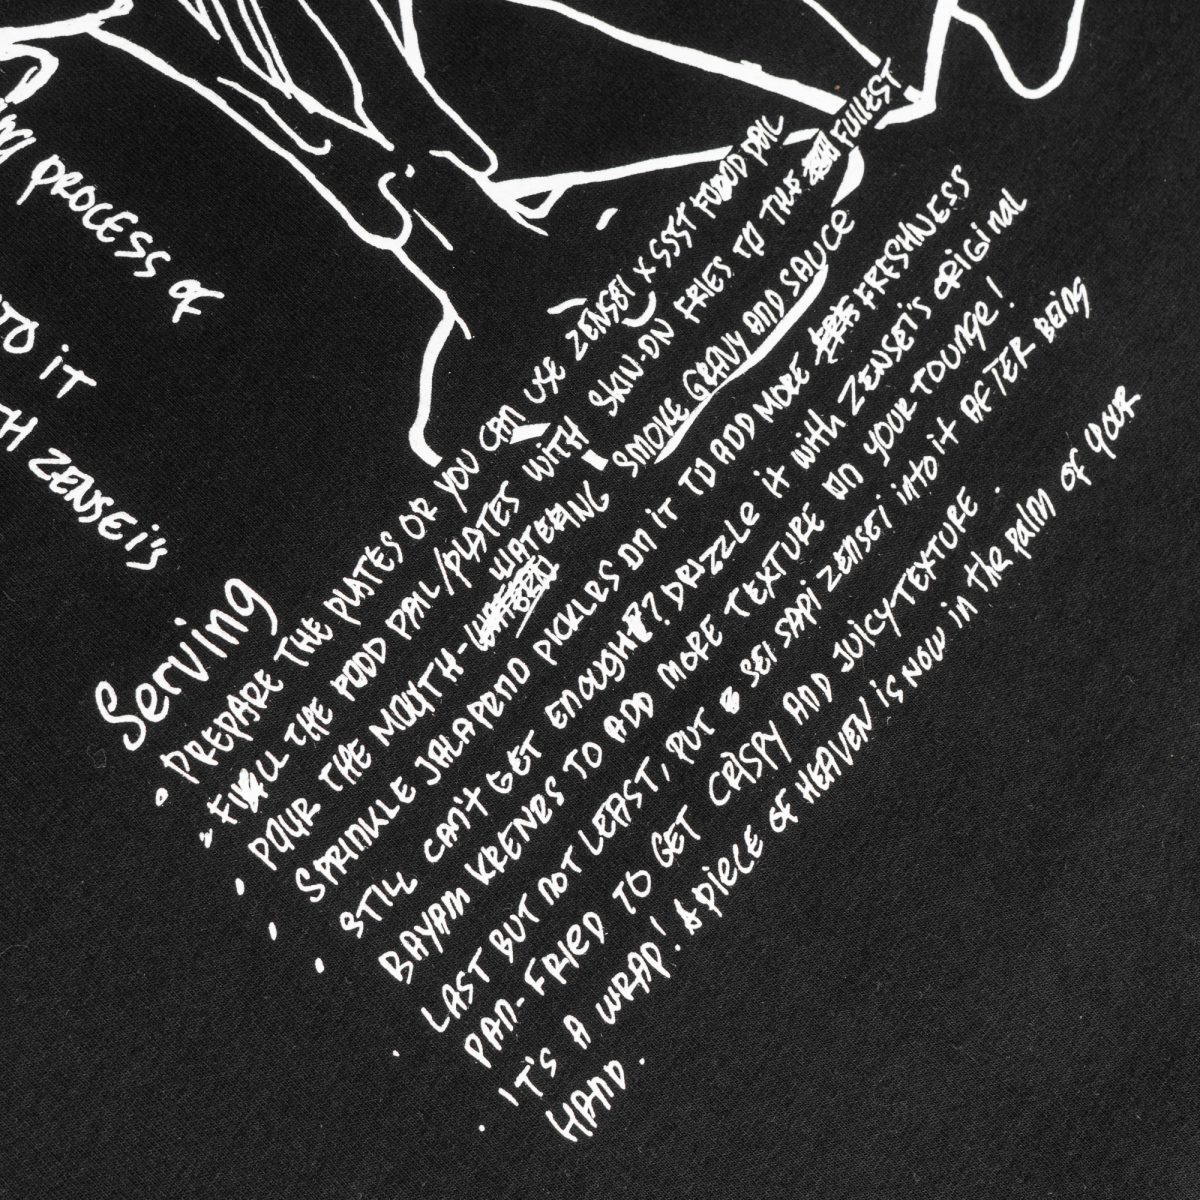 PROCESS OF
TO IT
ZENSEi's
Serving
• PREPARE THE PLATES OR YOU CAN USE ZENSEI X SSST FOOD PAIL
• FILL THE FOOD PAIL/PLATES WITH SKIN-ON FRIES TO THE FULLEST
• POUR THE MOUTH-WATERING SMOKE GRAVY AND SAUCE
• SPRINKLE JALAPENO PICKLES ON IT TO ADD MORE FRESHNESS
• STILL CAN'T GET ENOUGH? DRIZZLE IT WITH ZENSEI'S ORIGINAL
BAYAM KRENES TO ADD MORE TEXTURE ON YOUR TOUNGE!
• LAST BUT NOT LEAST, PUT SEI SAPI ZENSEI INTO IT AFTER BEING
PAN-FRIED TO GET CRISPY AND JUICY TEXTURE.
• IT'S A WRAP! A PIECE OF HEAVEN IS NOW IN THE PALM OF YOUR
HAND.